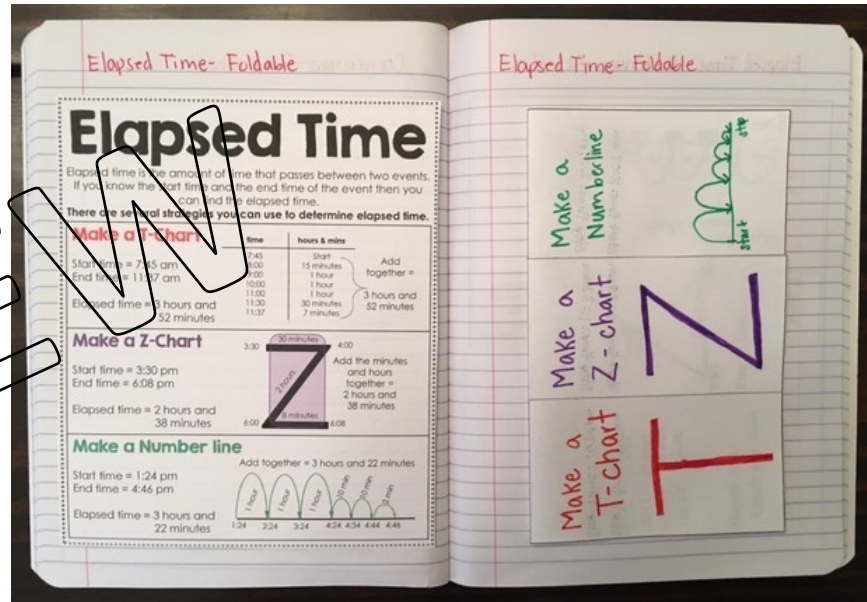 Elapsed Time- Foldable
Elapsed Time
Elapsed time is the amount of time that passes between two events.
If you know the start time and the end time of the event then you
can find the elapsed time.
There are several strategies you can use to determine elapsed time.
Make a T-Chart
Start time = 7:45 am
End time = 11:37 am
Elapsed time = 3 hours and
52 minutes
time hours & mins
7:45 Start
8:00 15 minutes
9:00 1 hour
10:00 1 hour
11:00 1 hour
11:30 30 minutes
11:37 7 minutes
Add
together =
3 hours and
52 minutes
Make a Z-Chart
Start time = 3:30 pm
End time = 6:08 pm
Elapsed time = 2 hours and
38 minutes
3:30 30 minutes 4:00
2 hours
6:00 8 minutes 6:08
Add the minutes
and hours
together =
2 hours and
38 minutes
Make a Number line
Start time = 1:24 pm
End time = 4:46 pm
Elapsed time = 3 hours and
22 minutes
Add together = 3 hours and 22 minutes
1 hour 1 hour 1 hour 10 min 10 min 2 min
1:24 2:24 3:24 4:24 4:34 4:44 4:46
Elapsed Time- Foldable
Make a
Numberline
start stop
Make a
Z-chart
Z
Make a
T-chart
T
EW